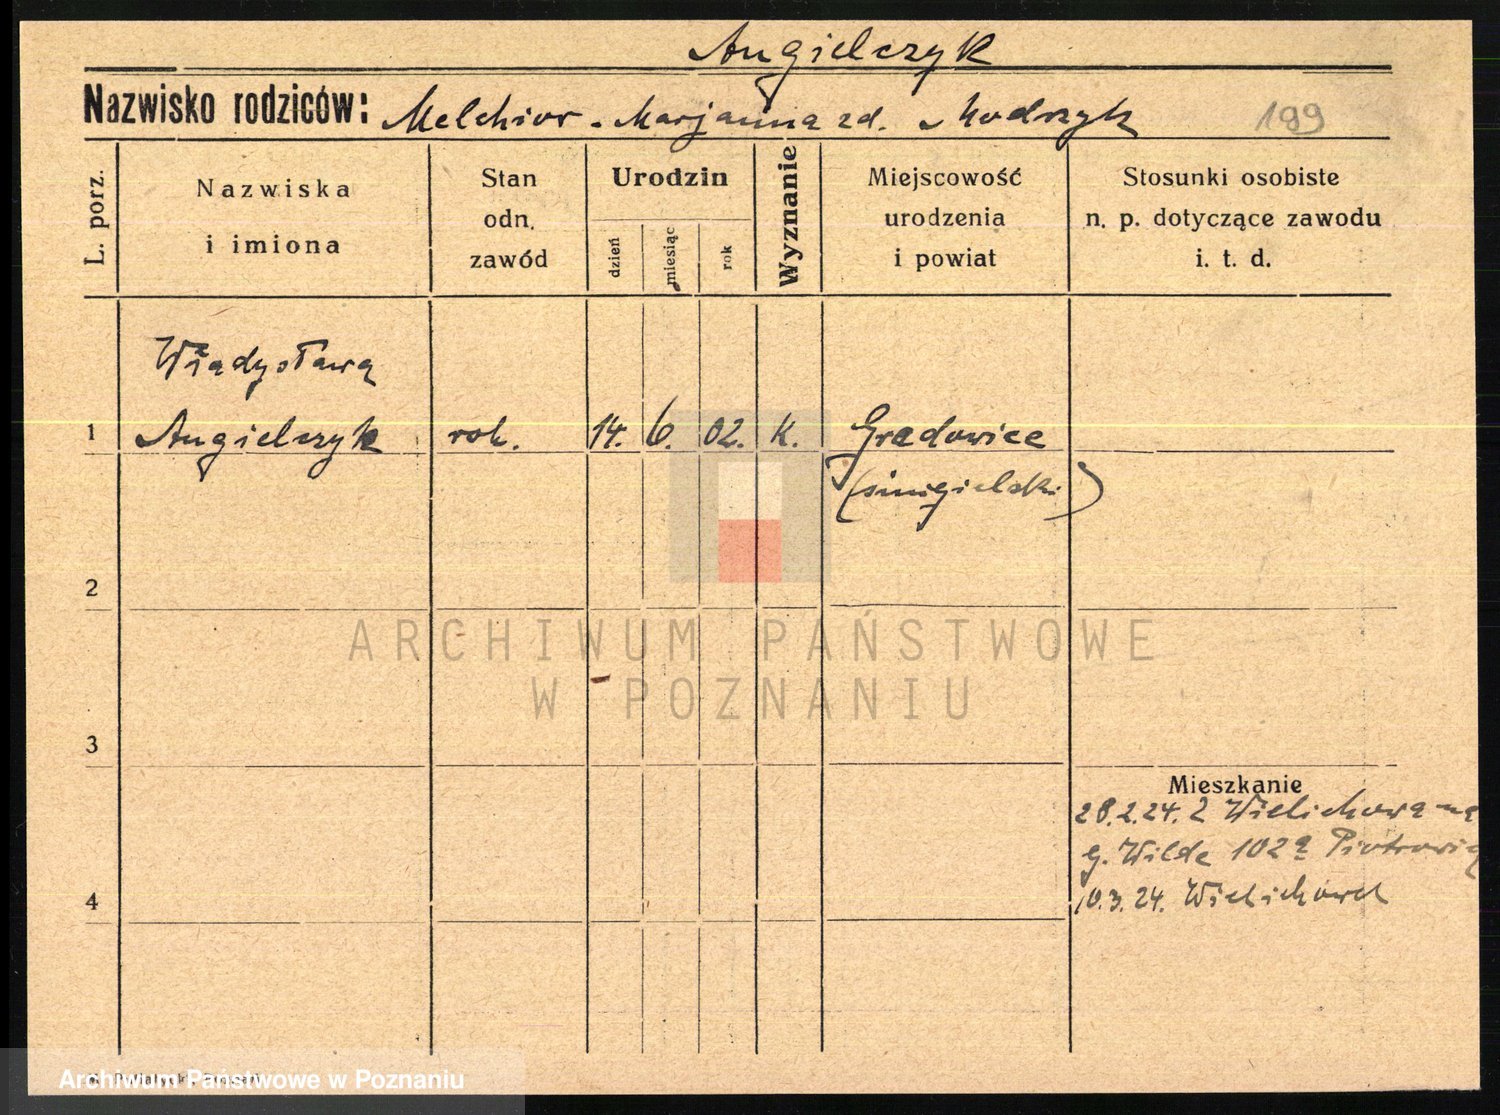 Angielczyk
Nazwisko rodziców: Melchior - Marjanna zd. Modrzyk
199
L. porz.
Nazwiska
i imiona
Stan
odn.
zawód
Urodzin
dzień
miesiąc
rok
Wyznanie
Miejscowość
urodzenia
i powiat
Stosunki osobiste
n. p. dotyczące zawodu
i. t. d.
Władysława
1 Angielczyk rob. 14. 6. 02. K. Gradowice
(śmigielski)
2
ARCHIWUM PAŃSTWOWE
W POZNANIU
3
Mieszkanie
28.2.24. z Wielichowa na
g. Wilda 102
4 10.3.24. Wielichowa
Archiwum Państwowe w Poznaniu